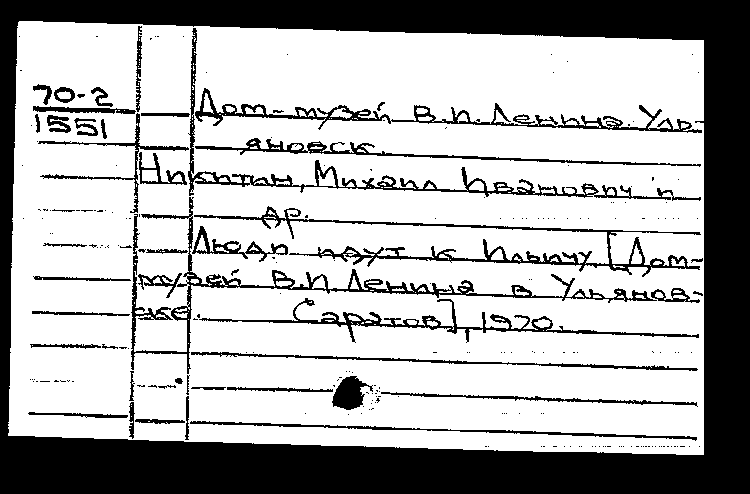 70-2
1551
Дом-музей В.И. Ленина. Уль-
яновск.
Никитин, Михаил Иванович и
др.
Люди идут к Ильичу. [Дом-
музей В.И. Ленина в Ульянов-
ске. Саратов], 1970.